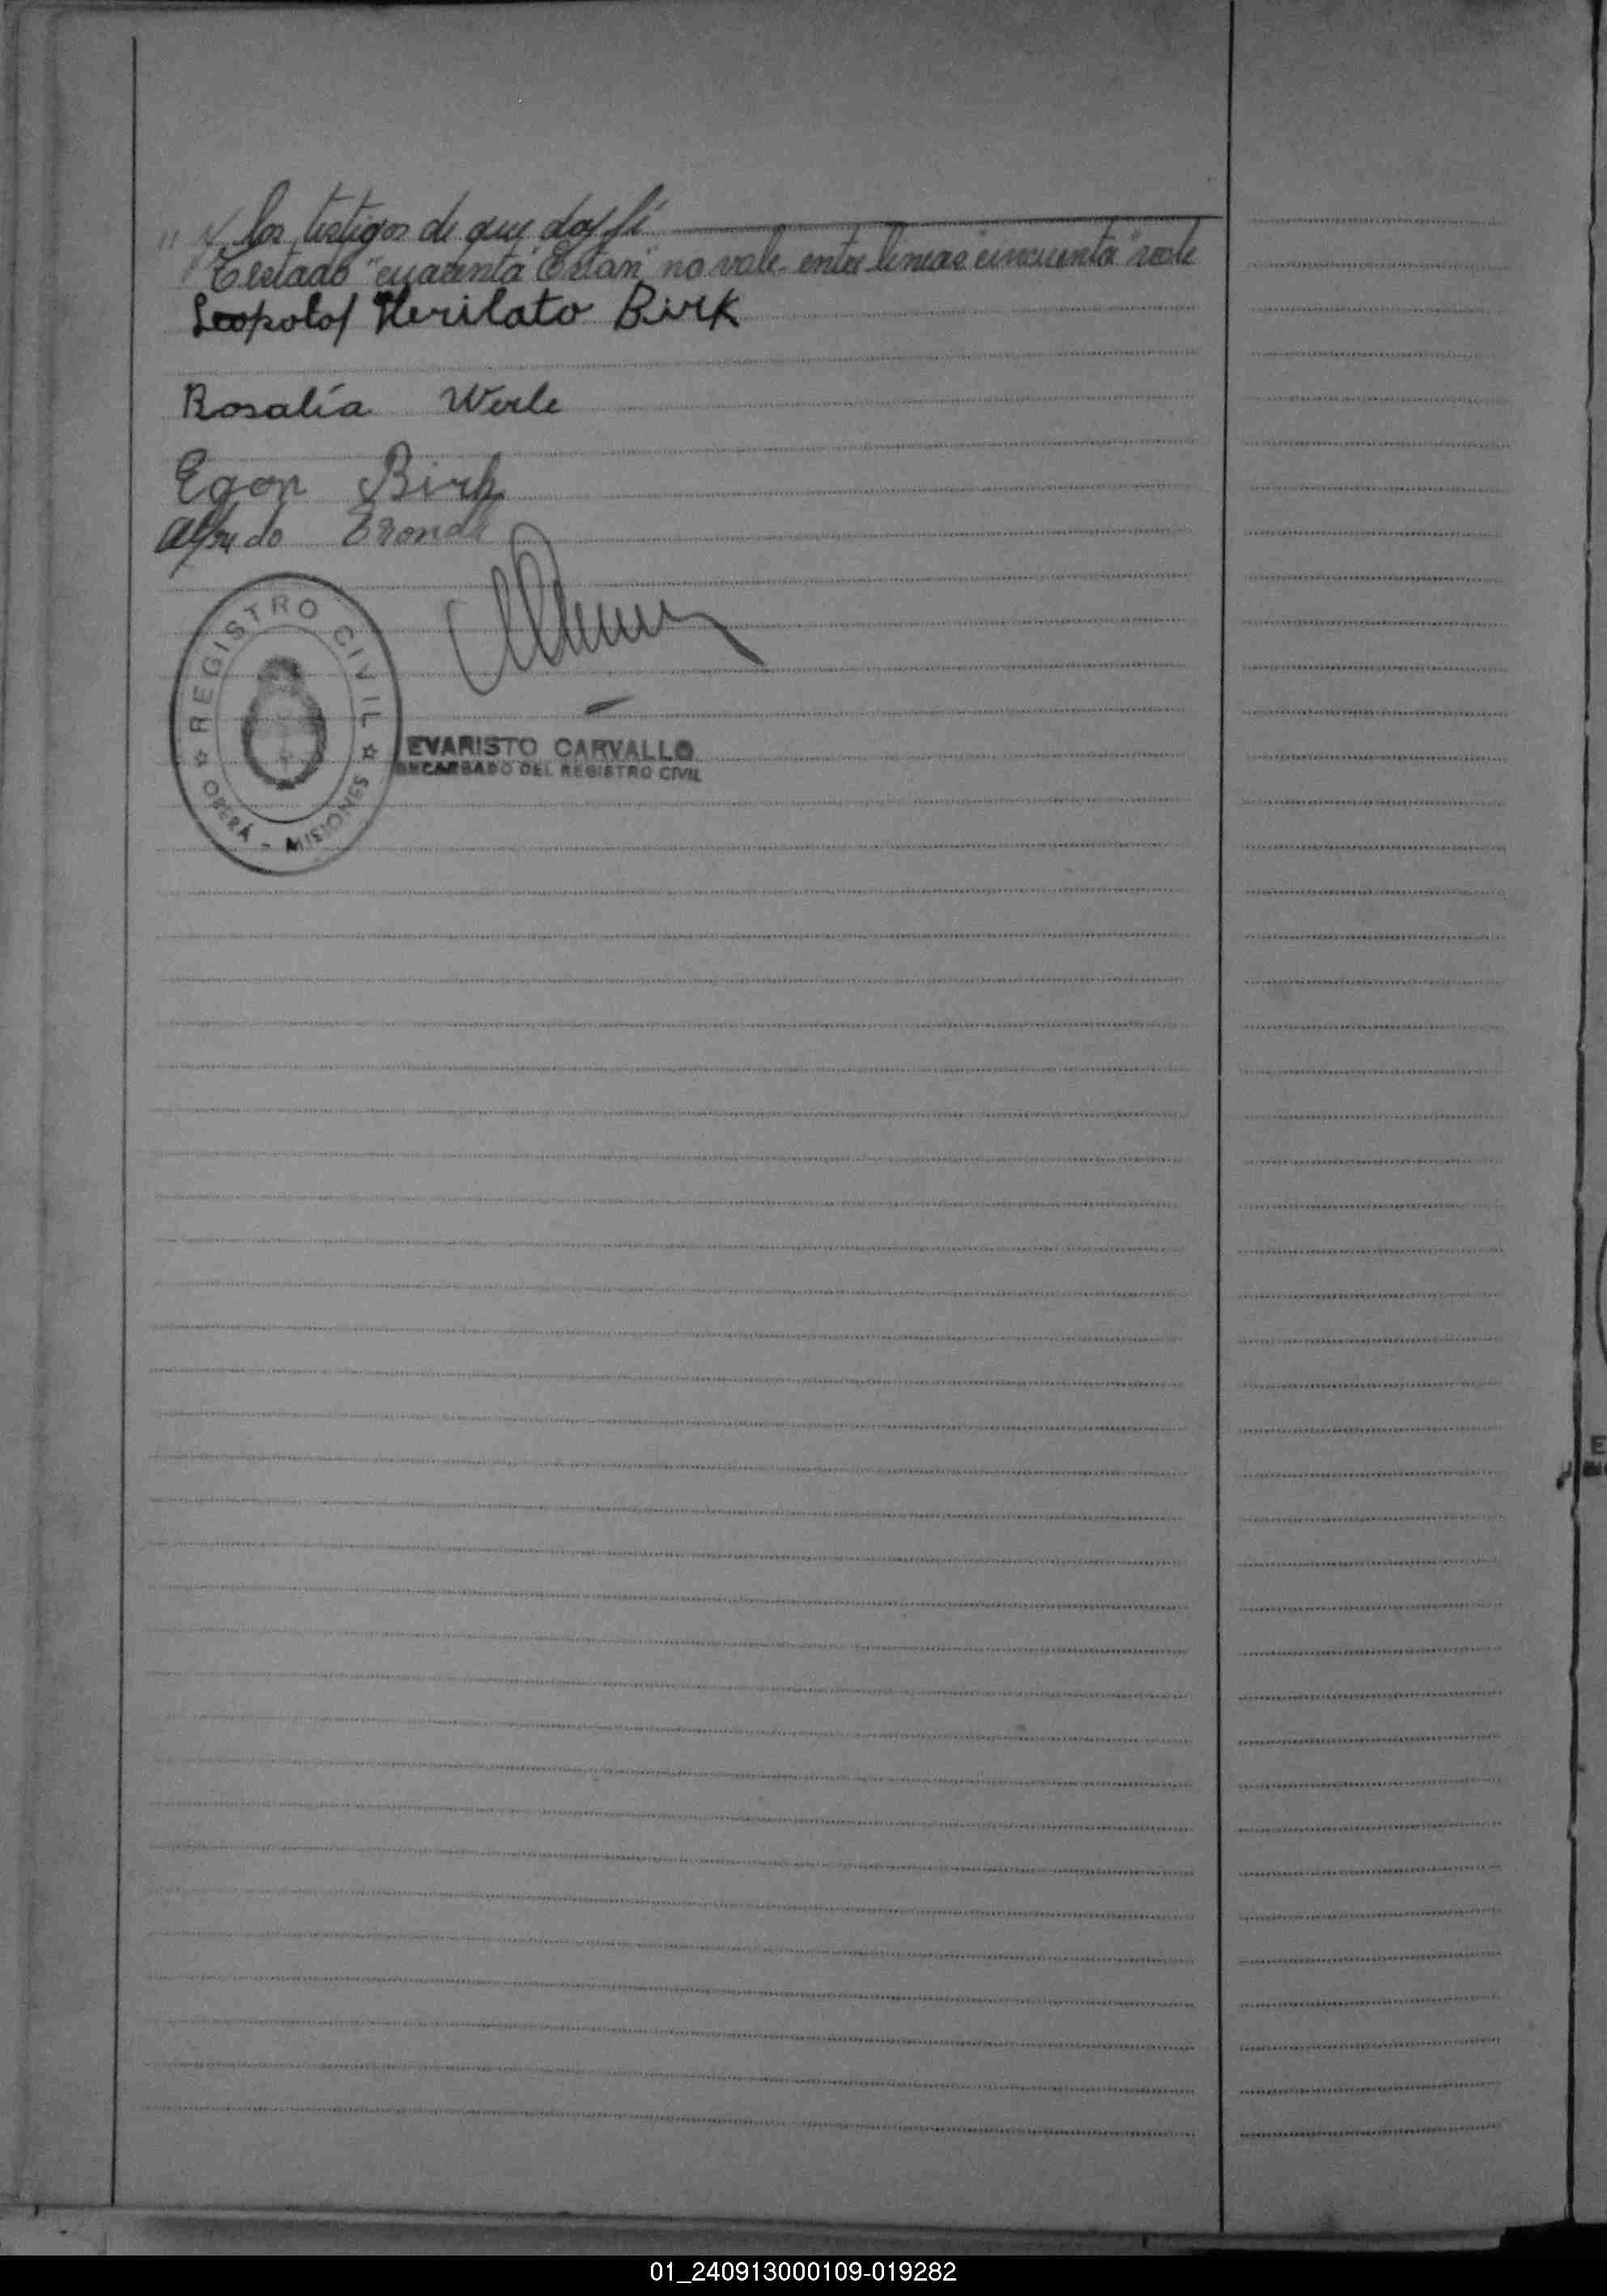 " y los testigos de que doy fé
Testado "cuarenta" "Estan" no vale - entre lineas "cincuenta" vale
Leopoldo Herilato Birk
Rosalía Werle
Egon Birk
Alfredo
REGISTRO CIVIL
OBERÁ - MISIONES
EVARISTO CARVALLO
ENCARGADO DEL REGISTRO CIVIL
01_240913000109-019282